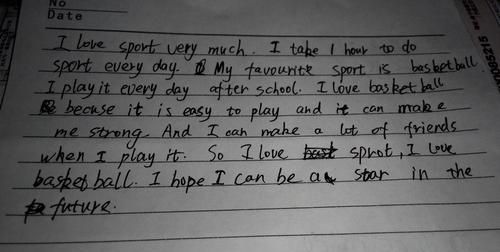 No
Date
I love sport very much. I take 1 hour to do
sport every day. My favourite sport is basketball
I play it every day after school. I love basketball
becuse it is easy to play and it can make
me strong. And I can make a lot of friends
when I play it. So I love sprot, I love
basketball. I hope I can be a star in the
future.